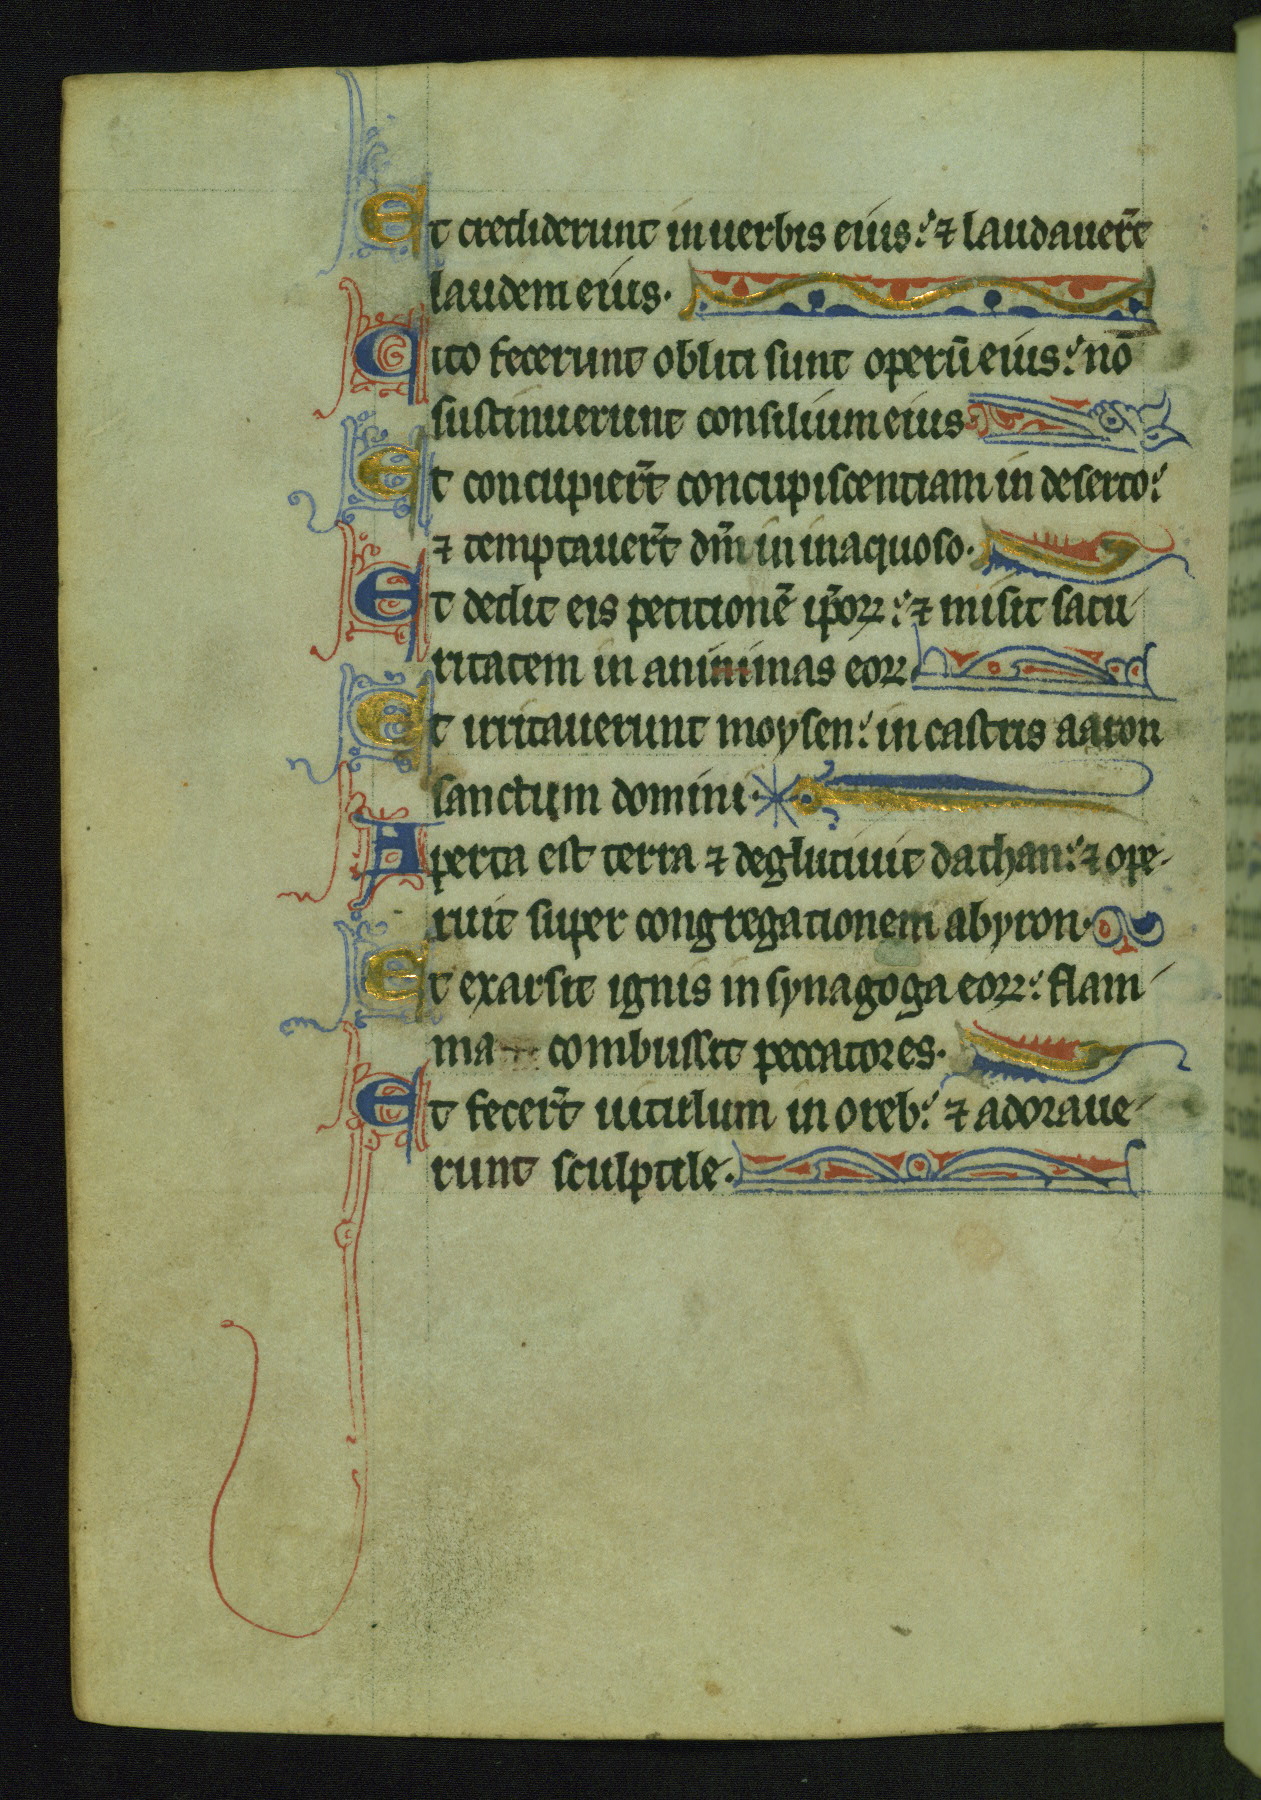 Et crediderunt in uerbis eius: ⁊ laudauer̃t
laudem eius.
Cito fecerunt obliti sunt operū eius: nō
sustinuerunt consilium eius
Et concupier̃t concupiscentiam in deserto:
⁊ temptauer̃t dm̃ in inaquoso.
Et dedit eis petitionē ip̄oꝝ: ⁊ misit satu
ritatem in animas eoꝝ
Et irritauerunt moysen: in castris aaron
sanctum domini.
Aperta est terra ⁊ deglutiuit dathan: ⁊ ope-
ruit super congregationem abyron.
Et exarsit ignis in synagoga eoꝝ: flam
ma combussit peccatores.
Et fecer̃t uitulum in oreb: ⁊ adoraue
runt sculptile.